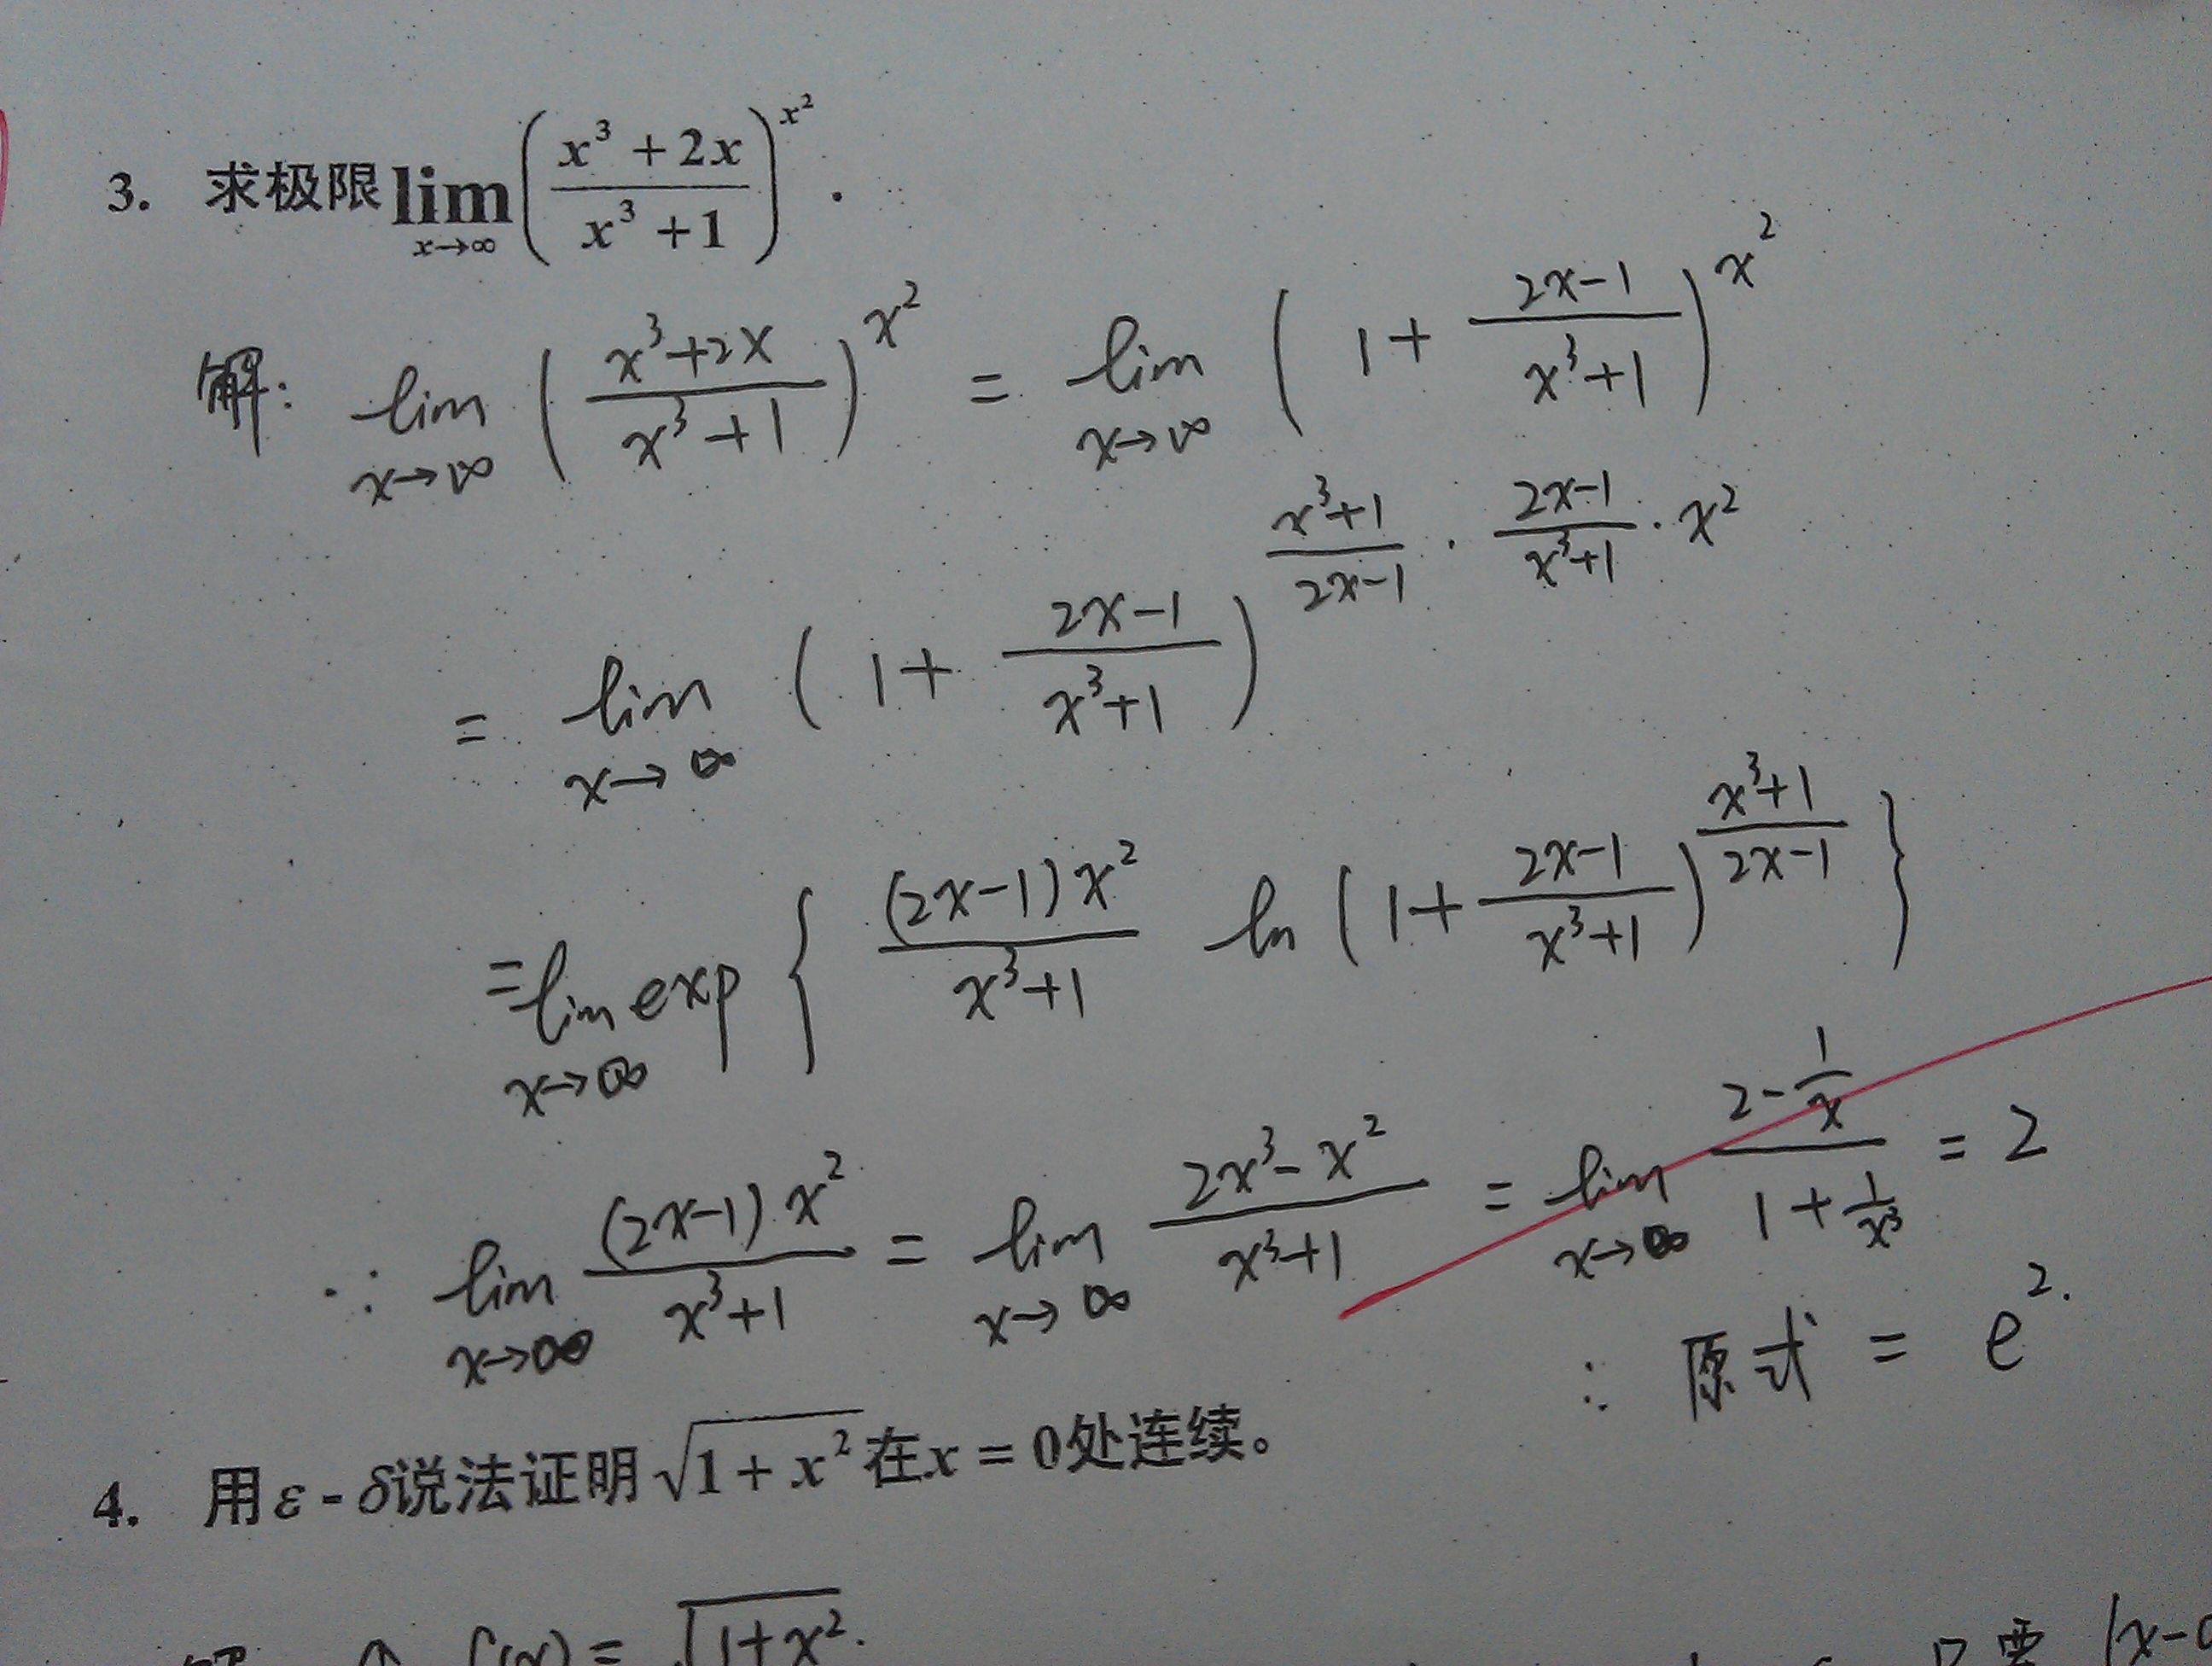 3. 求极限 lim_{x→∞} ( (x³+2x)/(x³+1) )^{x²} .
解: lim_{x→∞} ( (x³+2x)/(x³+1) )^{x²} = lim_{x→∞} ( 1 + (2x-1)/(x³+1) )^{x²}
= lim_{x→∞} ( 1 + (2x-1)/(x³+1) )^{(x³+1)/(2x-1) · (2x-1)/(x³+1) · x²}
= lim_{x→∞} exp { ((2x-1)x²)/(x³+1) ln ( 1 + (2x-1)/(x³+1) )^{(x³+1)/(2x-1)} }
∵ lim_{x→∞} ((2x-1)x²)/(x³+1) = lim_{x→∞} (2x³-x²)/(x³+1) = lim_{x→∞} (2-1/x)/(1+1/x³) = 2
∴ 原式 = e².
4. 用 ε - δ说法证明 √(1+x²) 在 x = 0处连续。
f(x) = √(1+x²).
只要 |x-0